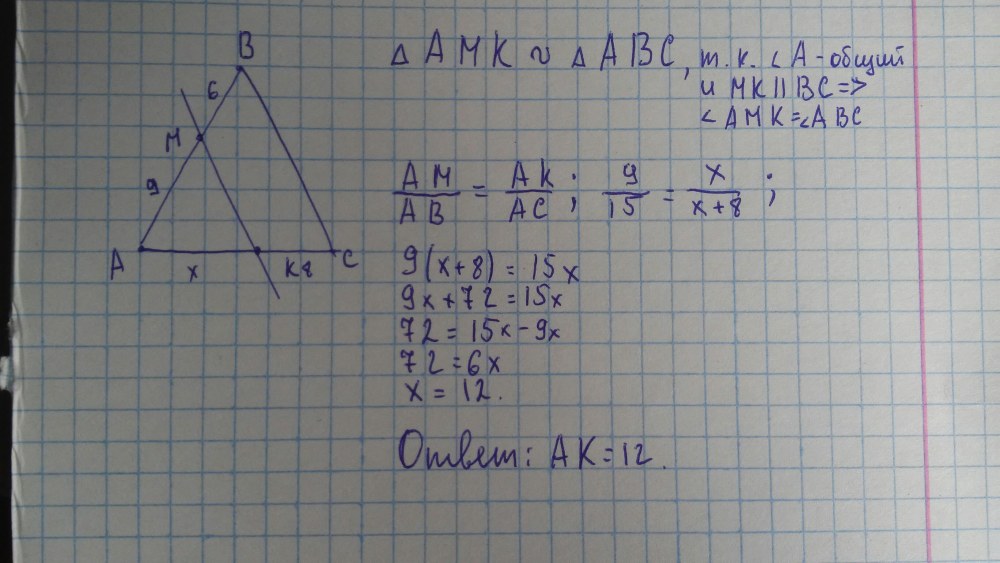 B
6
M
9
A
x
K 8
C
△ AMK ∾ △ ABC, т.к. ∠A - общий
и MK || BC =>
∠AMK=∠ABC
AM/AB = AK/AC ; 9/15 = x/x+8 ;
9(x+8) = 15x
9x+72=15x
72=15x-9x
72=6x
x = 12.
Ответ: AK=12.